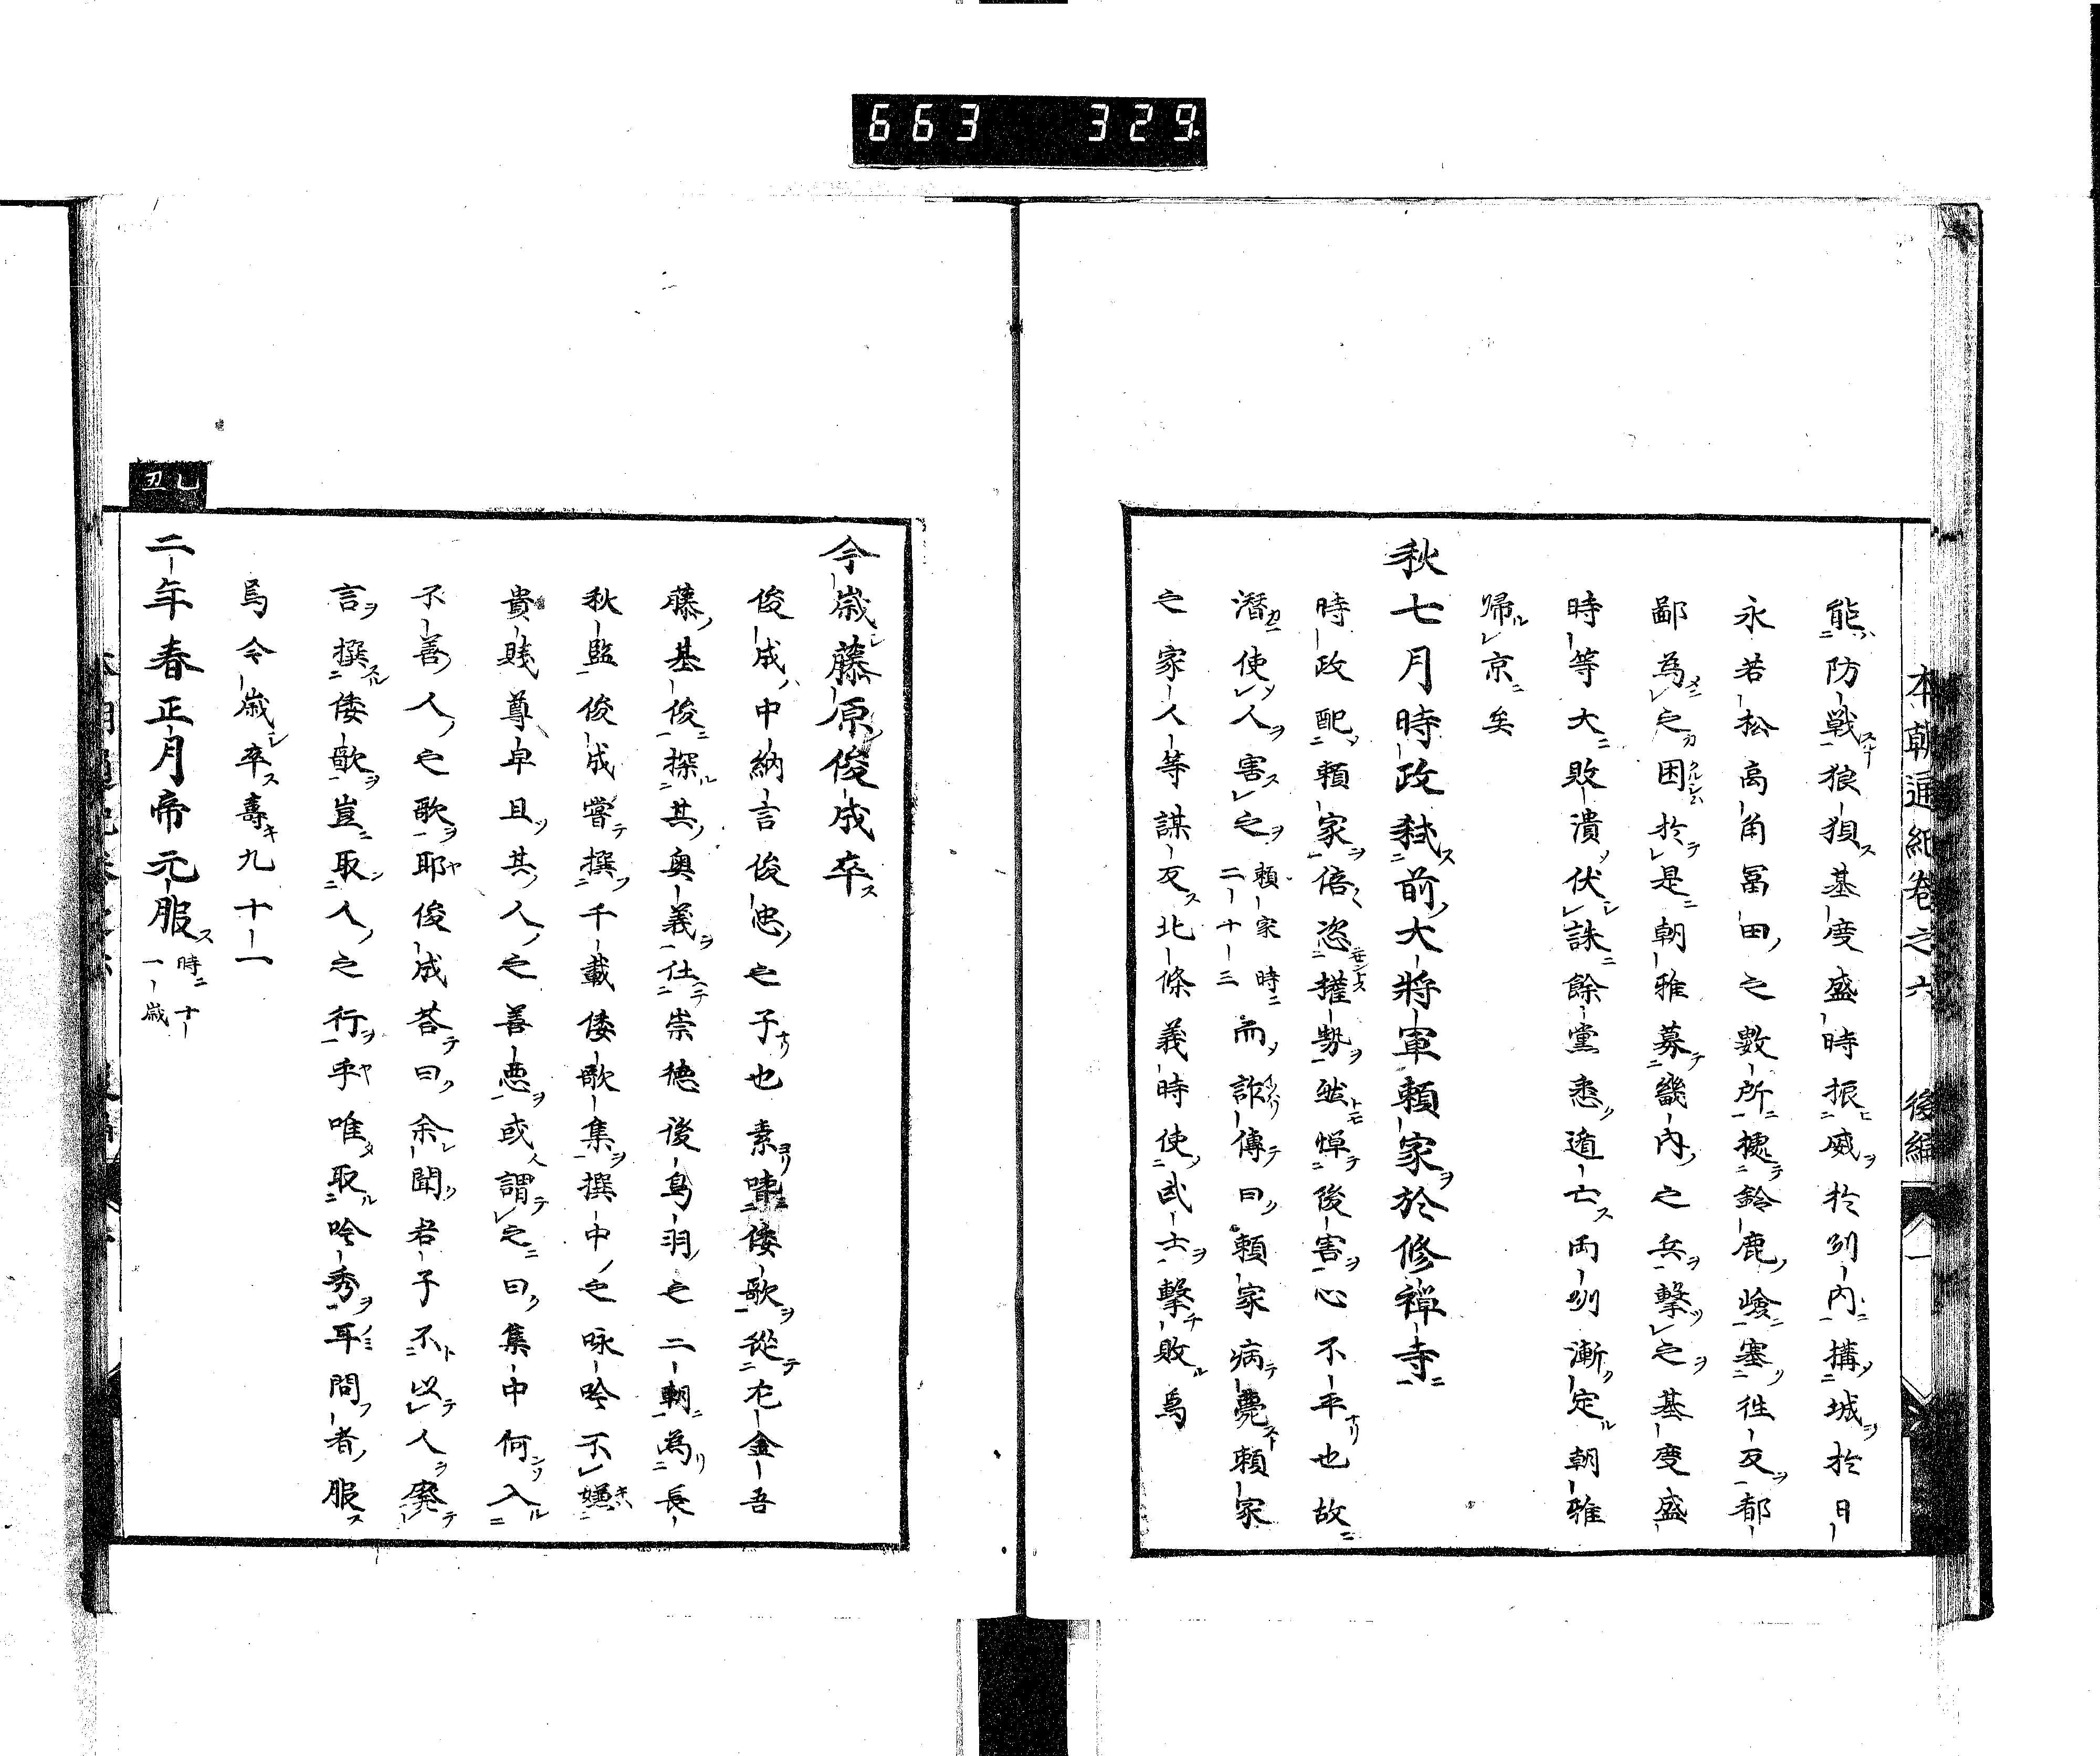 663 329
本朝通紀卷之六 後編 一
能防戰狼狽基度盛時振威於列内搆城於日
永若松高角冨田之數所據鈴鹿嶮塞徃反都
鄙為之困於是朝雅募畿内之兵擊之基度盛
時等大敗潰伏誅餘黨悉逋亡両列漸定朝雅
歸京矣
秋七月時政弑前大将軍頼家於修禅寺
時政配頼家倍恣權勢然憚後害心不平也故
潛使人害之頼家時二十三而詐傳曰頼家病薨頼家
之家人等謀反北條義時使武士擊敗焉
今歳藤原俊成卒
俊成中納言俊忠之子也素嗜倭歌從左金吾
藤基俊探其奥義仕崇德後鳥羽之二朝為長
秋監俊成嘗撰千載倭歌集撰中之咏吟不嫌
貴賎尊卑且其人之善悪或謂之曰集中何入
不善人之歌耶俊成荅曰余聞君子不以人廃
言撰倭歌豈取人之行乎唯取吟秀耳問者服
焉今歳卒壽九十一
乙丑
二年春正月帝元服時十一歳